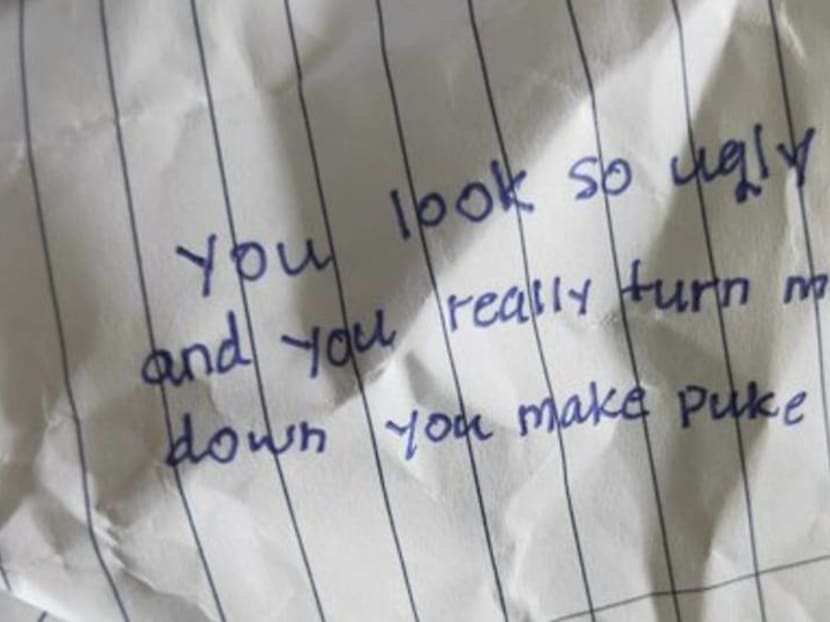 you look so ugly
and you really turn m
down you make puke